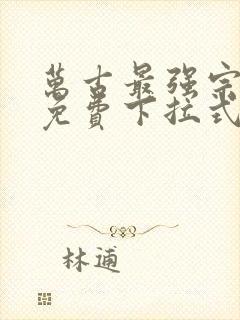 萬古最强宗
免費下拉式
林逋